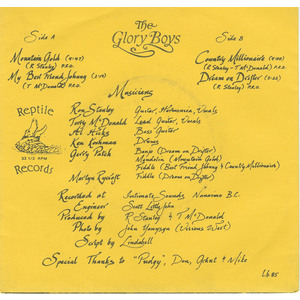 The
Glory Boys
Side A
Side B
Mountain Gold
(R. Stanley) P.R.O.
My Best Friend Johnny
(T. McDonald) P.R.O.
Country Millionaire
(R. Stanley - T. McDonald) P.R.O.
Dream on Drifter
(R. Stanley) P.R.O.
Musicians
Reptile
33 1/3 RPM
Records
Ron Stanley Guitar, Harmonica, Vocals
Terry McDonald Lead Guitar, Vocals
Al Hicks Bass Guitar
Ken Lockman Drums
Gerry Patch Banjo (Dream on Drifter)
Mandolin (Mountain Gold)
Fiddle (Best Friend Johnny & Country Millionaire)
Martyn Fiddle (Dream on Drifter)
Recorded at Intimate Sounds, Nanaimo B.C.
Engineer Scott Littlejohn
Produced by R Stanley & T McDonald
Photo by John
Script by Lindabell
Special Thanks to "Pudgy", Don, Grant & Mike